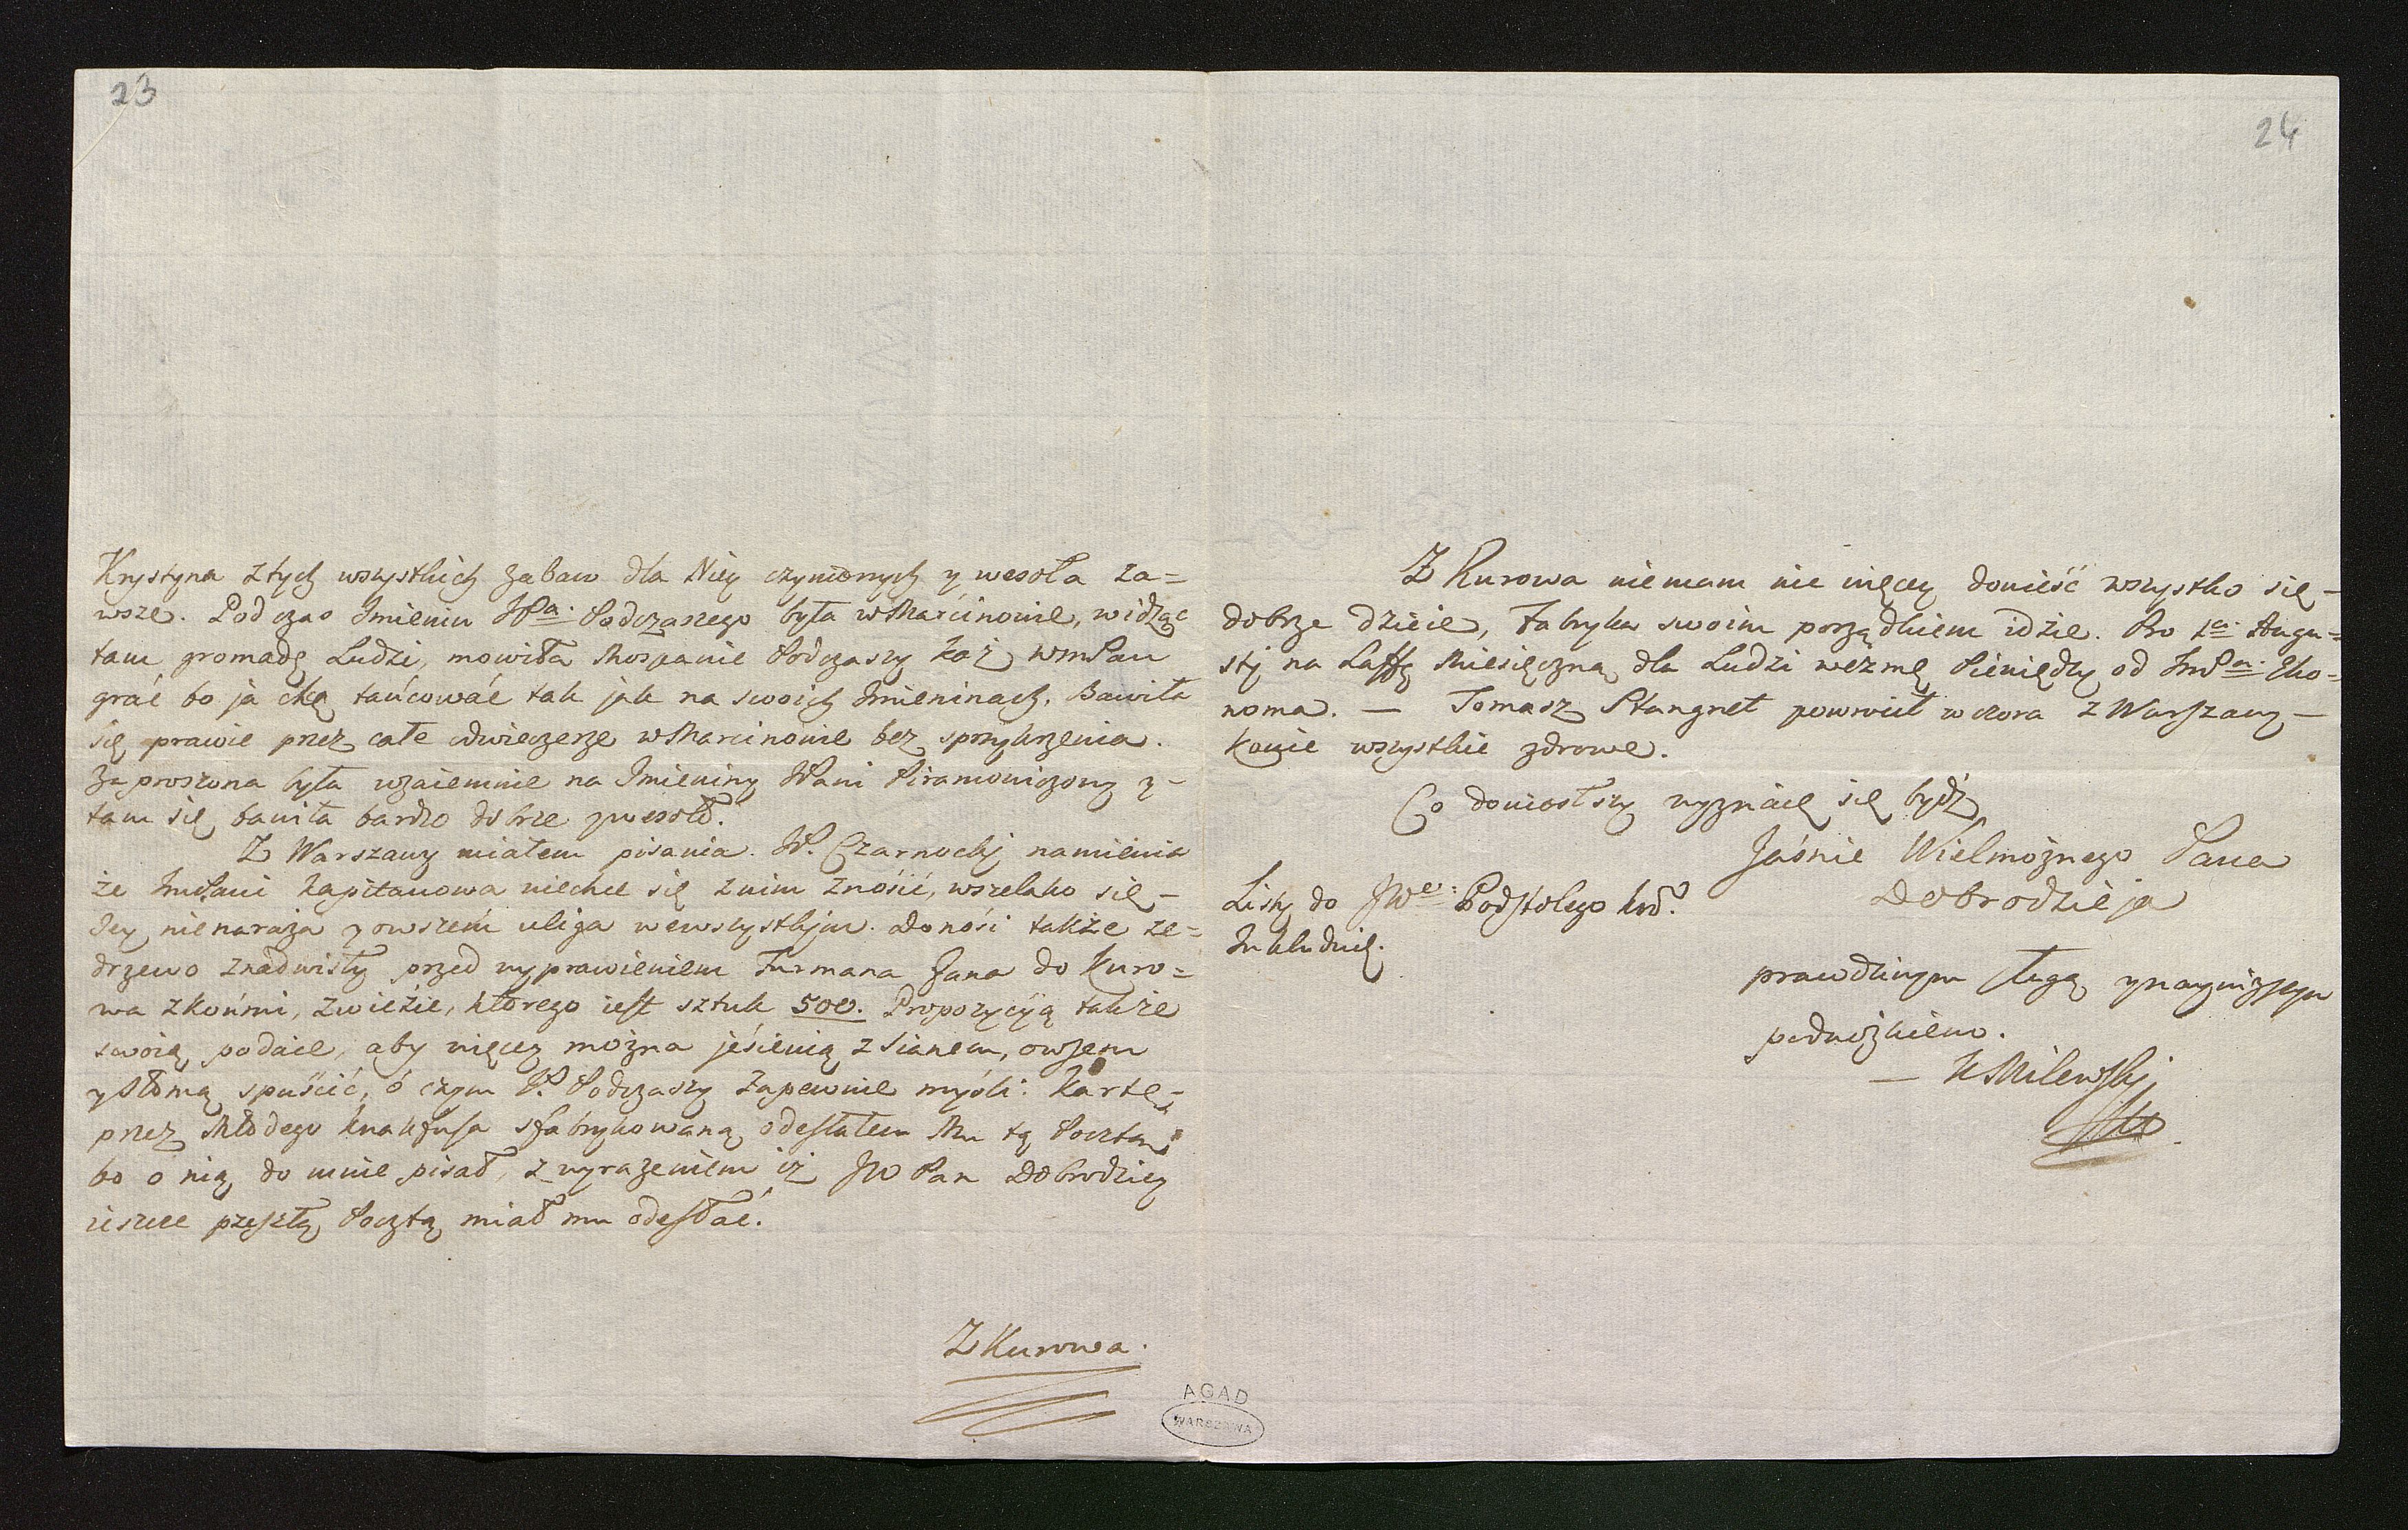 23
Krystyna z tych wszystkich zabaw dla Niey czynionych y wesoła za=
wsze. Podczas Imienin JPa. Podczaszego była w Marcinowie, widząc
tam gromadę Ludzi, mowiła Mospanie Podczaszy każ WmPan
grać bo ja chcę tańcować tak jak na swoich Imieninach. Bawiła
się prawie przez całe odwieczerze w Marcinowie bez sprzykrzenia.
Zaproszona była wzaiemnie na Imieniny JPani Piramowiczowy y-
tam się bawiła bardzo dobrze y wesoło.
Z Warszawy miałem pisania. JP. Czarnocky namienia
że ImcPani Kapitanowa niechce się z nim znosić, wszelako się-
Jey nienaraża y owszem uliga wewszystkjm. Donosi także że=
drzewo znadwisły przed wyprawieniem Furmana Jana do Kuro=
wa zkońmi, zwieźie, ktorego iest sztuk 500. Propozycyą także
swoię podaie, aby więcey można jeśienią z Sianem, owsem
y Słomą spuścić, o czym JP. Podczaszy zapewnie myśli. Kartę-
przez Młodego Knakfusa sfabrykowaną odesłałem Mu tą Pocztą
bo o nią do mnie pisał, z wyrażeniem iż JW Pan Dobrodziey
ieszcze przeszłą Pocztą miał mu odesłać.
Z Kurowa.
24
Z Kurowa niemam nic więcey donieść wszystko się-
dobrze dzieie, Fabryka swoim porządkiem idzie. Pro 1a. Augu=
stj na Laffę Miesięczną dla Ludzi wezmę Pieniędzy od ImPa. Eko=
noma. — Tomasz Stangret powrócił wczora z Warszawy —
konie wszystkie zdrowe.
Co doniosłszy wyznaię się bydź
Jaśnie Wielmożnego Pana
Dobrodzieja
Listy do JWo. Podstolego kor.
prawdziwym sługą y nayniższym
podnóżkiem.
— K Milewskj
AGAD
WARSZAWA